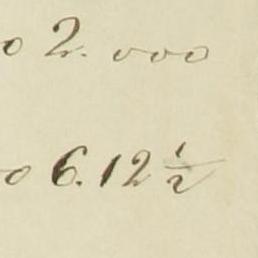 o 2. 000
o 6.12 1/2